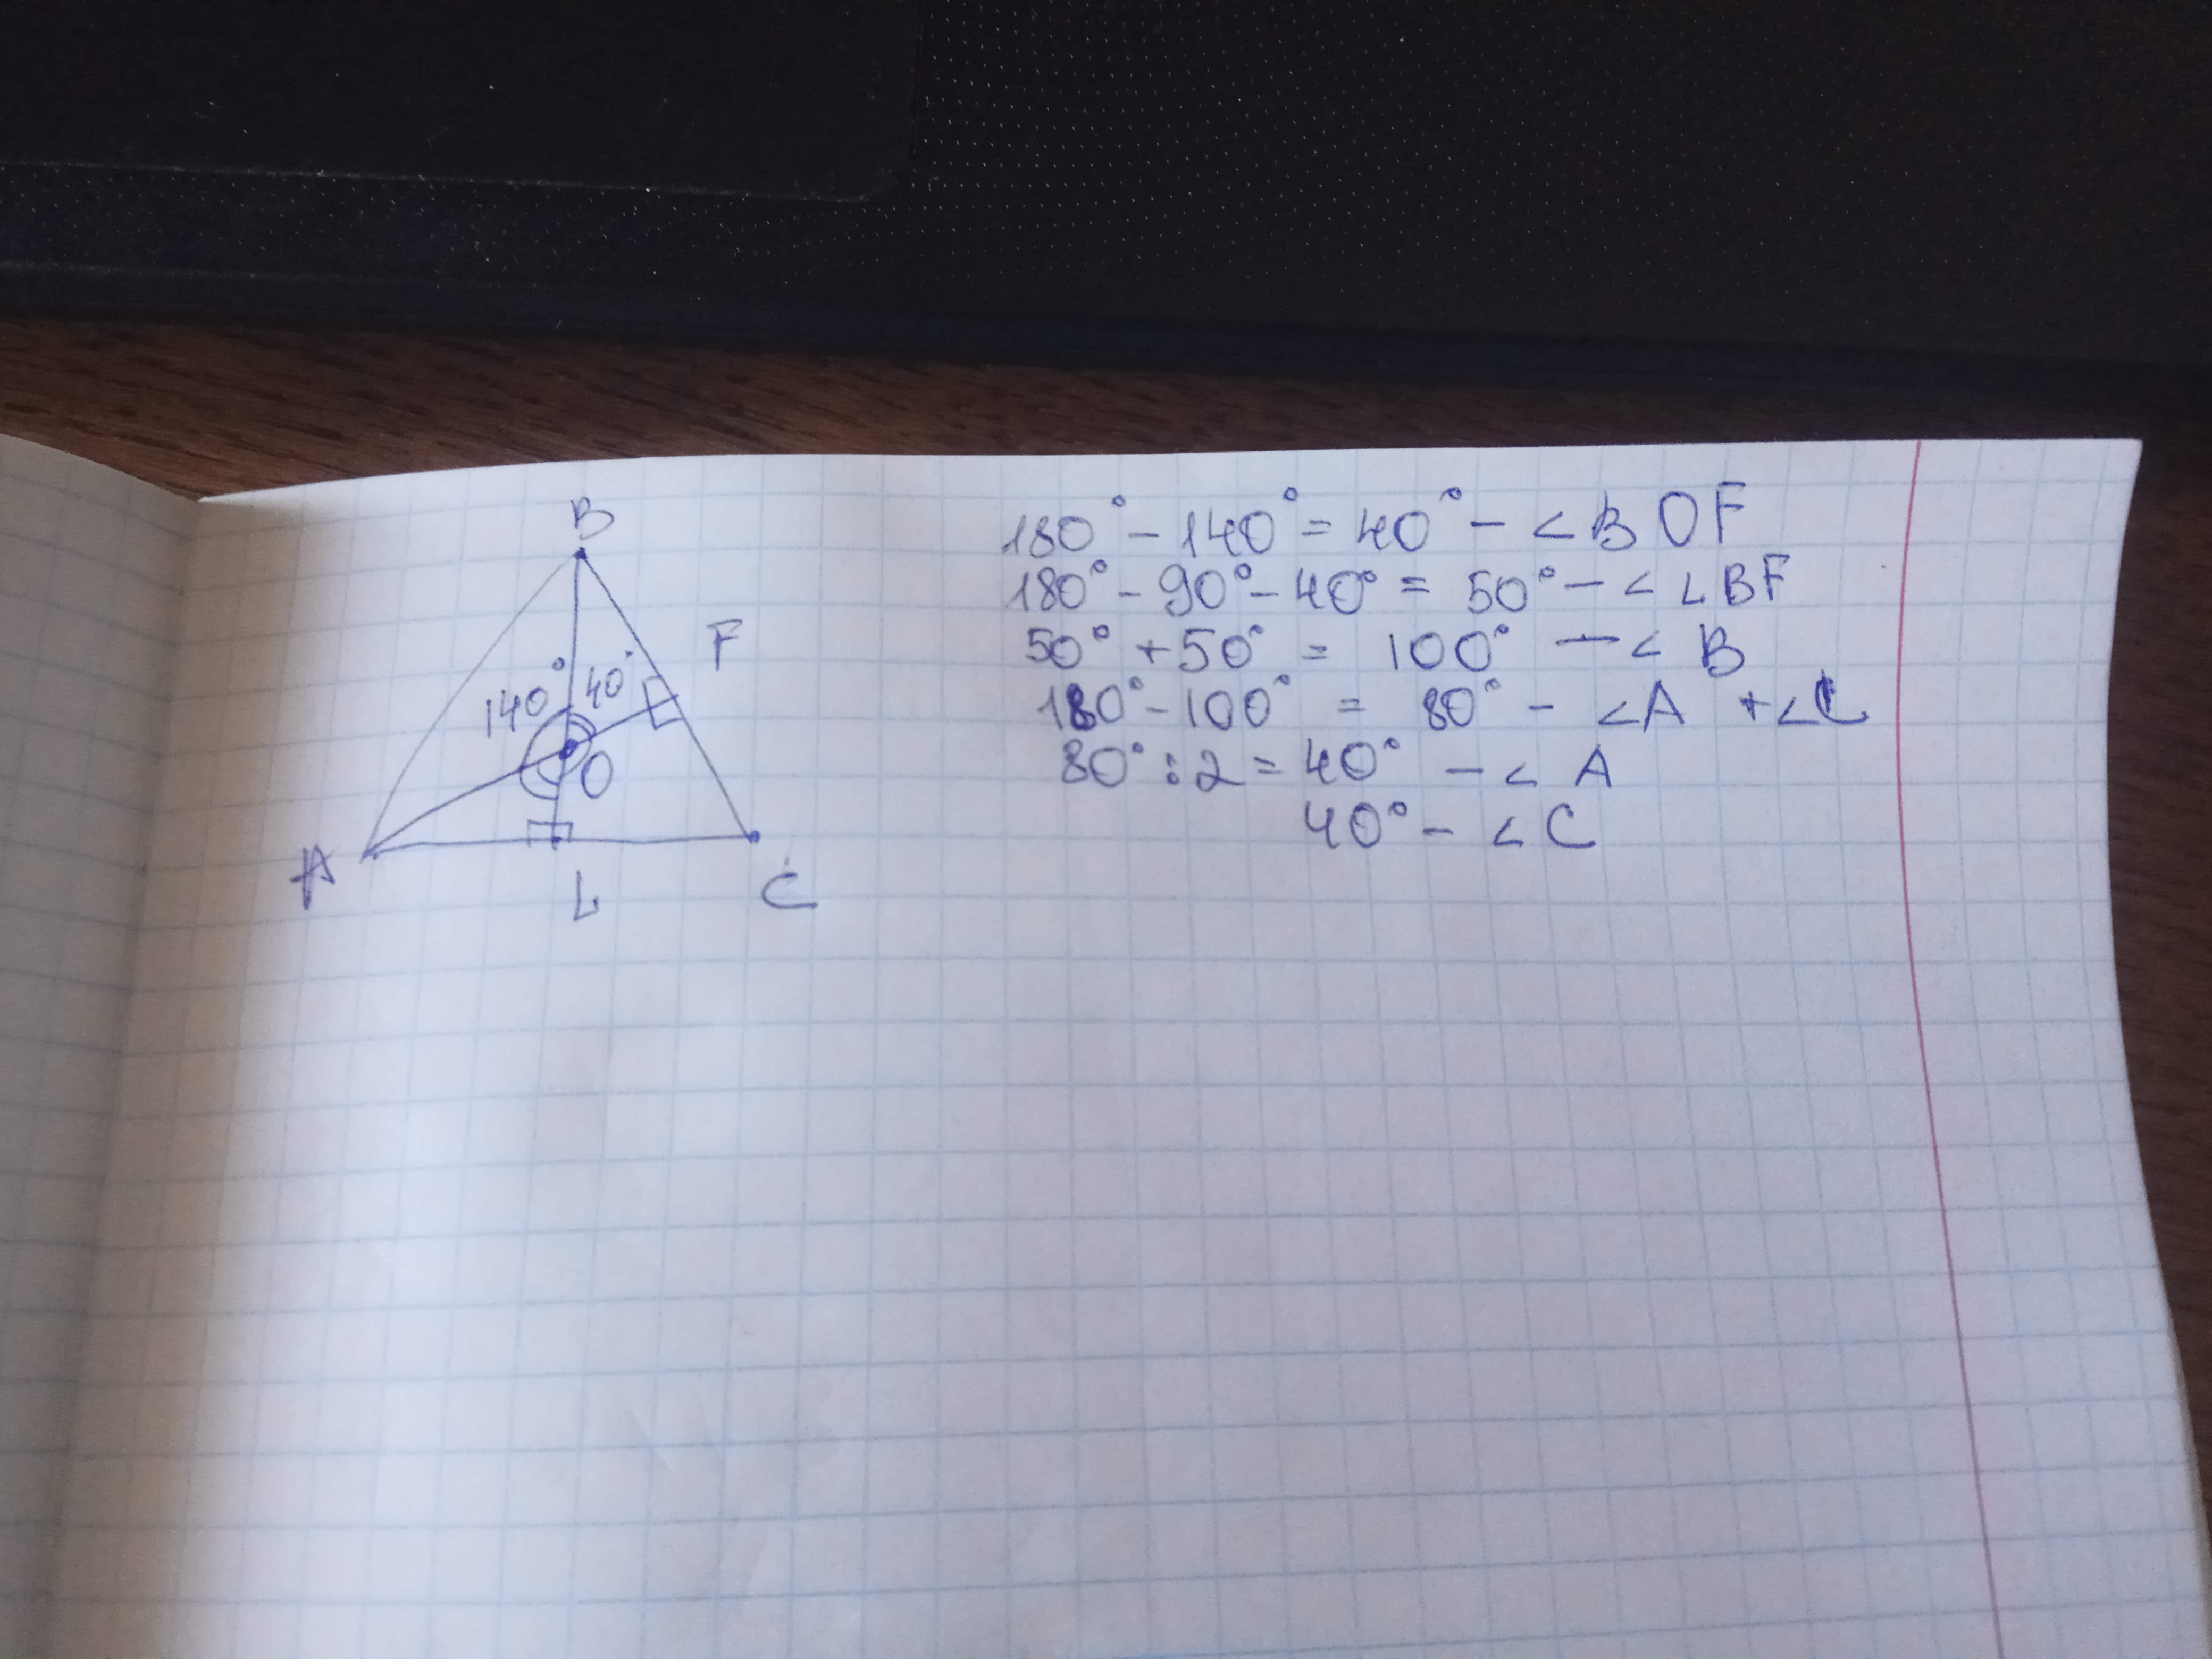 B
F
140°
40°
O
A
L
C
180° - 140° = 40° - <BOF
180° - 90° - 40° = 50° - < LBF
50° + 50° = 100° - < B
180° - 100° = 80° - <A + <C
80° : 2 = 40° - < A
40° - < C